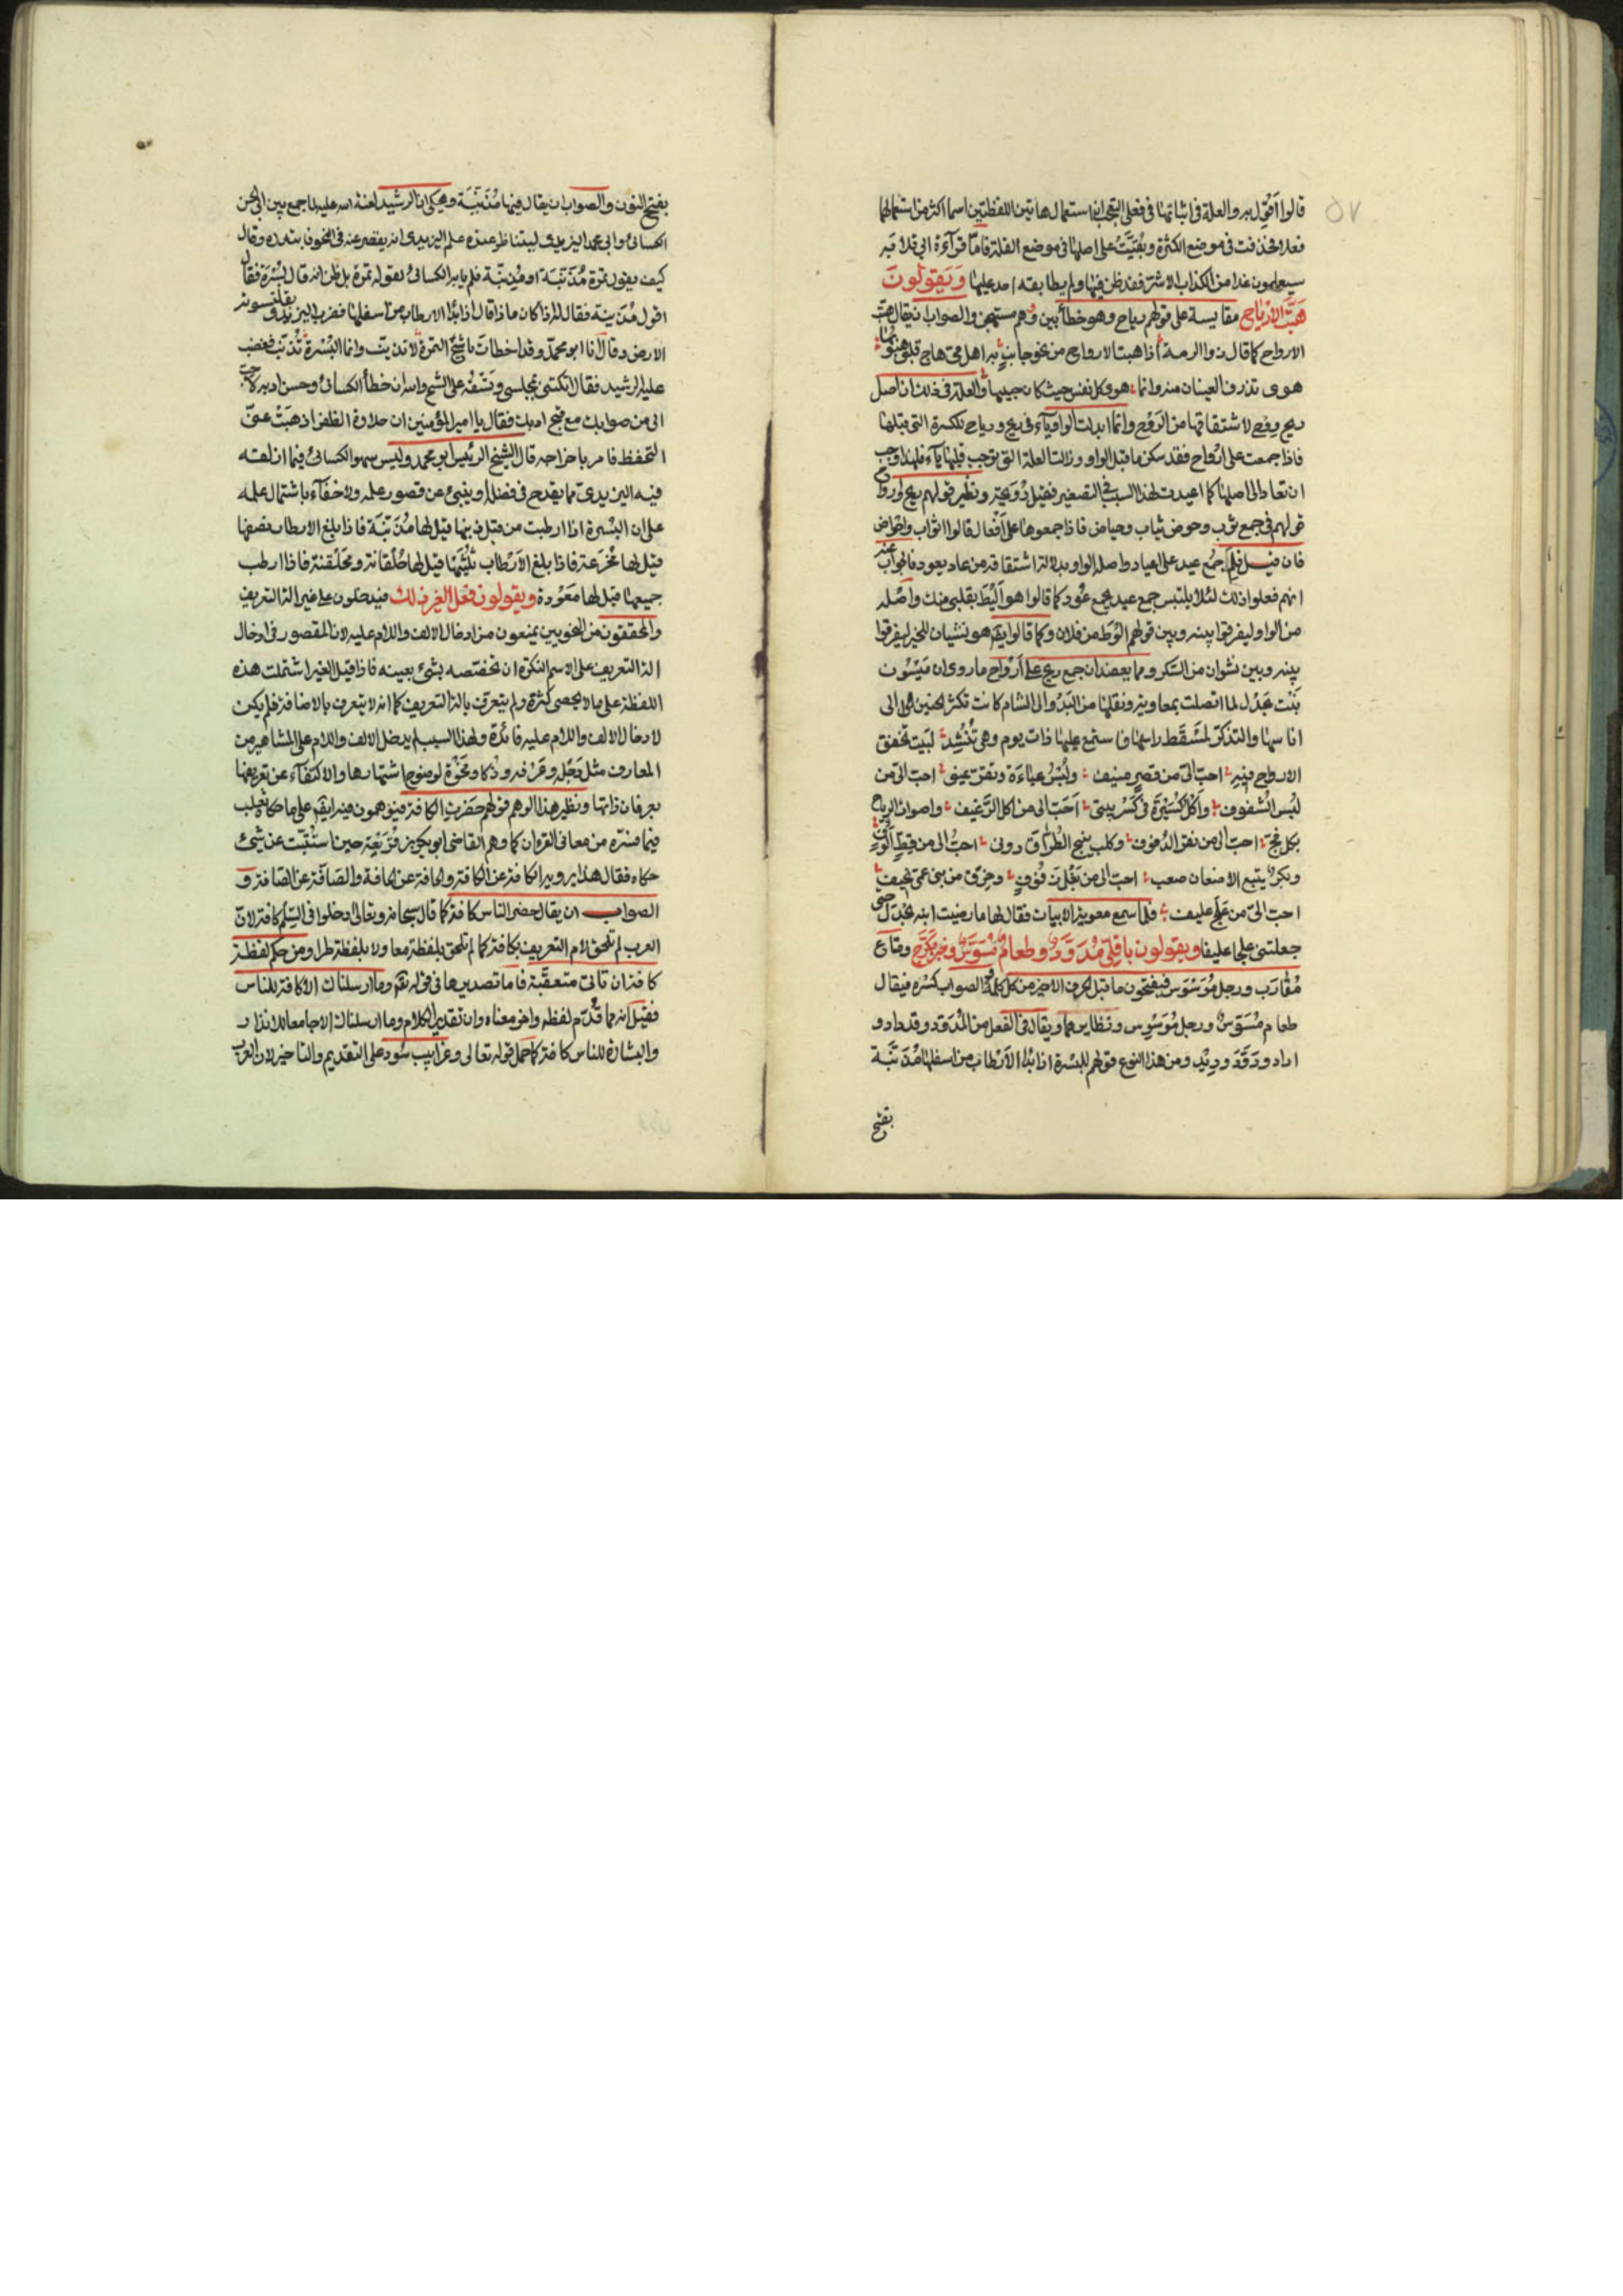 ٥٧
قالوا اقول به والعلة في اثباتها في فعلى التعجب ان استعمال هاتين اللفظتين اسما اكثر من استعمالهما
فعلا فحذفت في موضع الكثرة وبقيت على اصلها في موضع القلة فاما قرآءة ابي قلابه
سيعلمون غدا من الكذاب الاشر فقد لحن فيها ولم يطابقه احد عليها وَيَقولونَ
هَبَّت الارْياح مقايسة على قولهم رياح وهو خطأ بين ووهم مستهجن والصواب ان يقال هبت
الارواح كما قال ذو الرمة اذا هبت الارواح من نحو جانب به اهل مي هاج قلبي هبوبها
هوى تذرف العينان منه وانما هوى كل نفس حيث كان حبيبها والعلة في ذلك ان اصل
ريح روح لاشتقاقها من الرَوْح وانما ابدلت الواو ياء في ريح ورياح للكسرة التي قبلها
فاذا جمعت على ارْواح فقد سكن ما قبل الواو وزالت العلة التي توجب قلبها يآء فلهذا وجب
ان تعاد الى اصلها كما اعيدت لهذا السبب في التصغير فقيل رُوَيحة ونظير قولهم ريح وارواح
قولهم في جمع ثوب وحوض ثياب وحياض فاذا جمعوها على اَفْعال قالوا اثواب واحواض
فان قيل فلم جمع عيد على اعياد واصله الواو بدلالة اشتقاقه من عاد يعود فالجواب عنه
انهم فعلوا ذلك لئلا يلتبس جمع عيد بجمع عُود كما قالوا هو اَلْيَط بقلبي منك واصله
من الواو ليفرقوا بينه وبين قولهم الوَط من فلان وكما قالوا ايضا هو نشيان للخبر ليفرقوا
بينه وبين نشوان من السكر ومما يعضد ان جمع ريح على اَرْواح ما روي ان مَيْسُون
بنت بَحْدَل لما اتصلت بمعاوية ونقلها من البَدْو الى الشام كانت تكثر الحنين الى
اناسها والتذكر لمَسْقَط راسها فاستمع عليها ذات يوم وهي تُنْشِد لبَيت تخفق
الارواح فيه احب الي من قصر منيف ولُبْسُ عباءَة وتقر عيني احب الي من
لُبْس الشفوف واَكْل كُسَيْرَة في كَسْر بيتي اَحَبّ الي من اكل الرَغيف واصوات الرياح
بكل فج احب الي من نقر الدفوف وكلب ينبح الطُرّاق دوني احبّ الي من قِطّ اَلُوفٍ
وبكر يتبع الاضعان صعب احب الي من بَغْل زَفُوفٍ وخِرْق من بني عمي نحيف
احب الي من عِلْج عليف فلما سمع معوية الابيات قال لها ما رضيت ابنة بَحْدَل حتى
جعلتني علجا عليفا ويقولون باقِلّى مُدَوَّد وطعام مُسَوَّس وخبز مُكَرَّج ومتاع
مُقارَب ورجل مُوَسْوَس فيفتحون ما قبل الحرف الاخير من كل كلمة والصواب كسره فيقال
طعام مُسَوِّس ورجل مُوَسْوِس ونظايرهما ويقال في الفعل من المُدَوّد قد داد و
اداد ودَوَّدَ وديد ومن هذا النوع قولهم للبسرة اذا بدا الاَرْطاب من اسفلها مُذَنَّبَة
بفتح
بفتح النون والصواب ان يقال فيها مُذَنِّبَة وحكي ان الرشيد لعنة الله عليه لما جمع بين ابي الحسن
الكسائي وابي محمد اليزيدي ليتناظرا عنده علم اليزيدي انه يقصر عنه في النحو فابتدره وقال
كيف يقول تمرة مُذَنَّبَة او مُذَنِّبة فلم يابه الكسائي لقوله تمرة بل ظن انه قال بُسْرَة فقال
اقول مُذَنِّبة فقال له اذا كان ماذا قال اذا بدا الارطاب من اسفلها فضرب اليزيدي بقلنسوته
الارض وقال انا ابو محمد وقد اخطأتَ يا شيخ التمرة لا تذنب وانما البُسْرة تُذَنِّب فغضب
عليه الرشيد فقال اتكتني بمجلسي وتَسْفُه على الشيخ والله ان خطأ الكسائي وحسن ادبه لاحب
الي من صوابك مع قبح ادبك فقال يا امير المؤمنين ان حلاوة الظفر اذهَبَتْ عني
التحفظ فامر باخراجه قال الشيخ الرئيس ابو محمد وليس سهو الكسائي فيما انلفته
فيه اليزيدي مما يقدح في فضله او ينبي عن قصور علمه ولا خفآء باشتمال علمه
على ان البُسْرة اذا ارطبت من قبل ذنبها قيل لها مُذَنِّبَة فاذا بلغ الارطاب نصفها
قيل لها مُجَزَّعة فاذا بلغ الاَرْطاب ثُلُثَيْها قيل لها حُلْقانة ومُحَلْقنة فاذا ارطب
جميعها قيل لها مَعْوَدة ويقولون فعل الغير ذلك فيدخلون على غير الة التعريف
والمحققون من النحويين يمنعون من ادخال الالف واللام عليه لان المقصور في ادخال
الة التعريف على الاسم النكرة ان تخصصه بشئ بعينه فاذا قيل الغير اشتملت هذه
اللفظة على ما لا يحصى كثرة ولم يتعرف بالة التعريف كما انه لا يتعرف بالاضافة فلم يكن
لادخال الالف واللام عليه فائدة ولهذا السبب لم يدخل الالف واللام على المشاهير من
المعارف مثل دَجْلَه وعَرَفه وذُكا ومَحْوَة لوضوح اشتهارها والاكتفآء عن تعريفها
بعرفان ذاتها ونظير هذا الوهم قولهم حَضَرَتِ الكافة فيوهمون فيه ايضا على ما حكاه ثعلب
فيما فسّره من معاني القرءان كما وهم القاضي ابو بكر بن قُرَيْعَة حين استُثْبِت عن شئ
حكاه فقال هذا يرويه الكافة عن الكافة والحافة عن الحافة والصَافّة عن الصافة و
الصواب ان يقال حضر الناس كافة كما قال سبحانه وتعالى ادخلوا في السِّلْم كافة لان
العرب لم تلحق لام التعريف بكافة كما لم تلحق بلفظة معا ولا بلفظة طرا ومن حكم لفظة
كافة ان تأتي متعقّبة فاما تصديرها في قوله تعالى وما ارسلناك الا كافة للناس
فقيل انه مما قُدِّم لفظه واخر معناه وان تقدير الكلام وما ارسلناك الا جامعا للانذار
والبشارة للناس كافة كما حُمل قوله تعالى وغرابيب سُود على التقديم والتاخير لان العرب